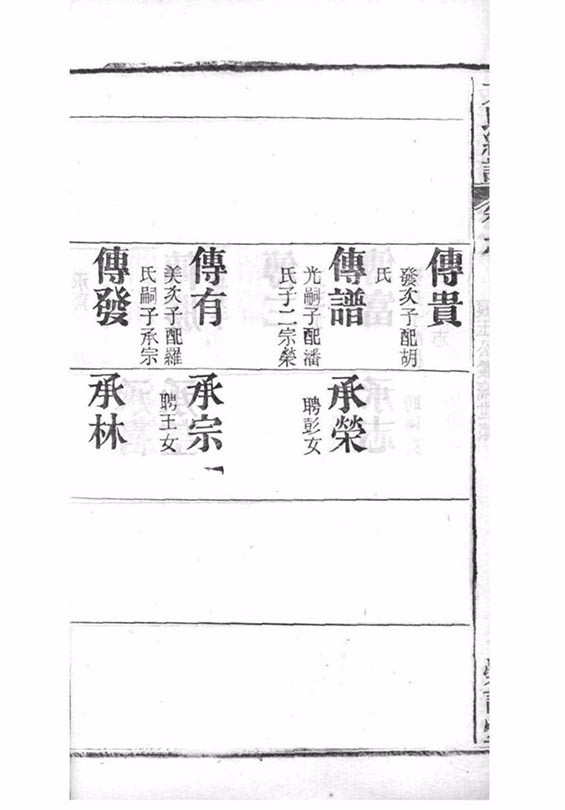 傳貴
發次子配胡
氏
傳譜
光嗣子配潘
氏子二宗榮
承榮
聘彭女
傳有
美次子配羅
氏嗣子承宗
承宗
聘王女
傳發
承林